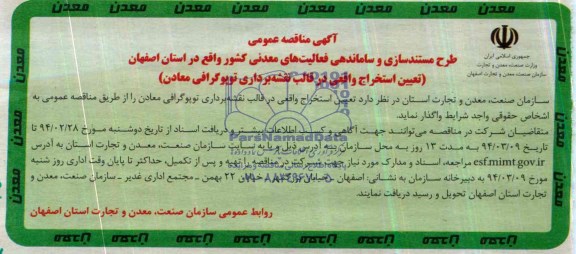 آگهی مناقصه عمومی
طرح مستندسازی و ساماندهی فعالیت‌های معدنی کشور واقع در استان اصفهان
(تعیین استخراج واقعی در قالب نقشه‌برداری توپوگرافی معادن)
جمهوری اسلامی ایران
وزارت صنعت، معدن و تجارت
سازمان صنعت، معدن و تجارت اصفهان
سازمان صنعت، معدن و تجارت استان در نظر دارد تعیین استخراج واقعی در قالب نقشه‌برداری توپوگرافی معادن را از طریق مناقصه عمومی به
اشخاص حقوقی واجد شرایط واگذار نماید.
متقاضیان شرکت در مناقصه می‌توانند جهت آگاهی و کسب اطلاعات بیشتر و دریافت اسناد از تاریخ دوشنبه مورخ ۹۴/۰۲/۲۸ تا
تاریخ ۹۴/۰۳/۰۹ به مدت ۱۳ روز به محل سازمان به آدرس ذیل و یا به سایت سازمان صنعت، معدن و تجارت استان به آدرس
esf.mimt.gov.ir مراجعه، اسناد و مدارک مورد نیاز جهت شرکت در مناقصه را تهیه و پس از تکمیل، حداکثر تا پایان وقت اداری روز شنبه
مورخ ۹۴/۰۳/۰۹ به دبیرخانه سازمان به نشانی: اصفهان - خیابان ۲۲ بهمن - مجتمع اداری غدیر - سازمان صنعت، معدن و
تجارت استان اصفهان تحویل و رسید دریافت نمایند.
روابط عمومی سازمان صنعت، معدن و تجارت استان اصفهان
ParsNamadData